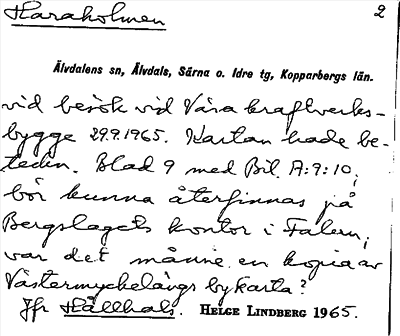 Haraholmen 2
Älvdalens sn, Älvdals, Särna o. Idre tg, Kopparbergs län.
vid besök vid Våsa kraftverks-
bygge 29.9.1965. Kartan hade be-
teckn. Blad 9 med Bil. A:9:10;
bör kunna återfinnas på
Bergslagets kontor i Falun;
var det månne en kopia av
Västermyckelängs bykarta?
Jfr Hållhals. HELGE LINDBERG 1965.